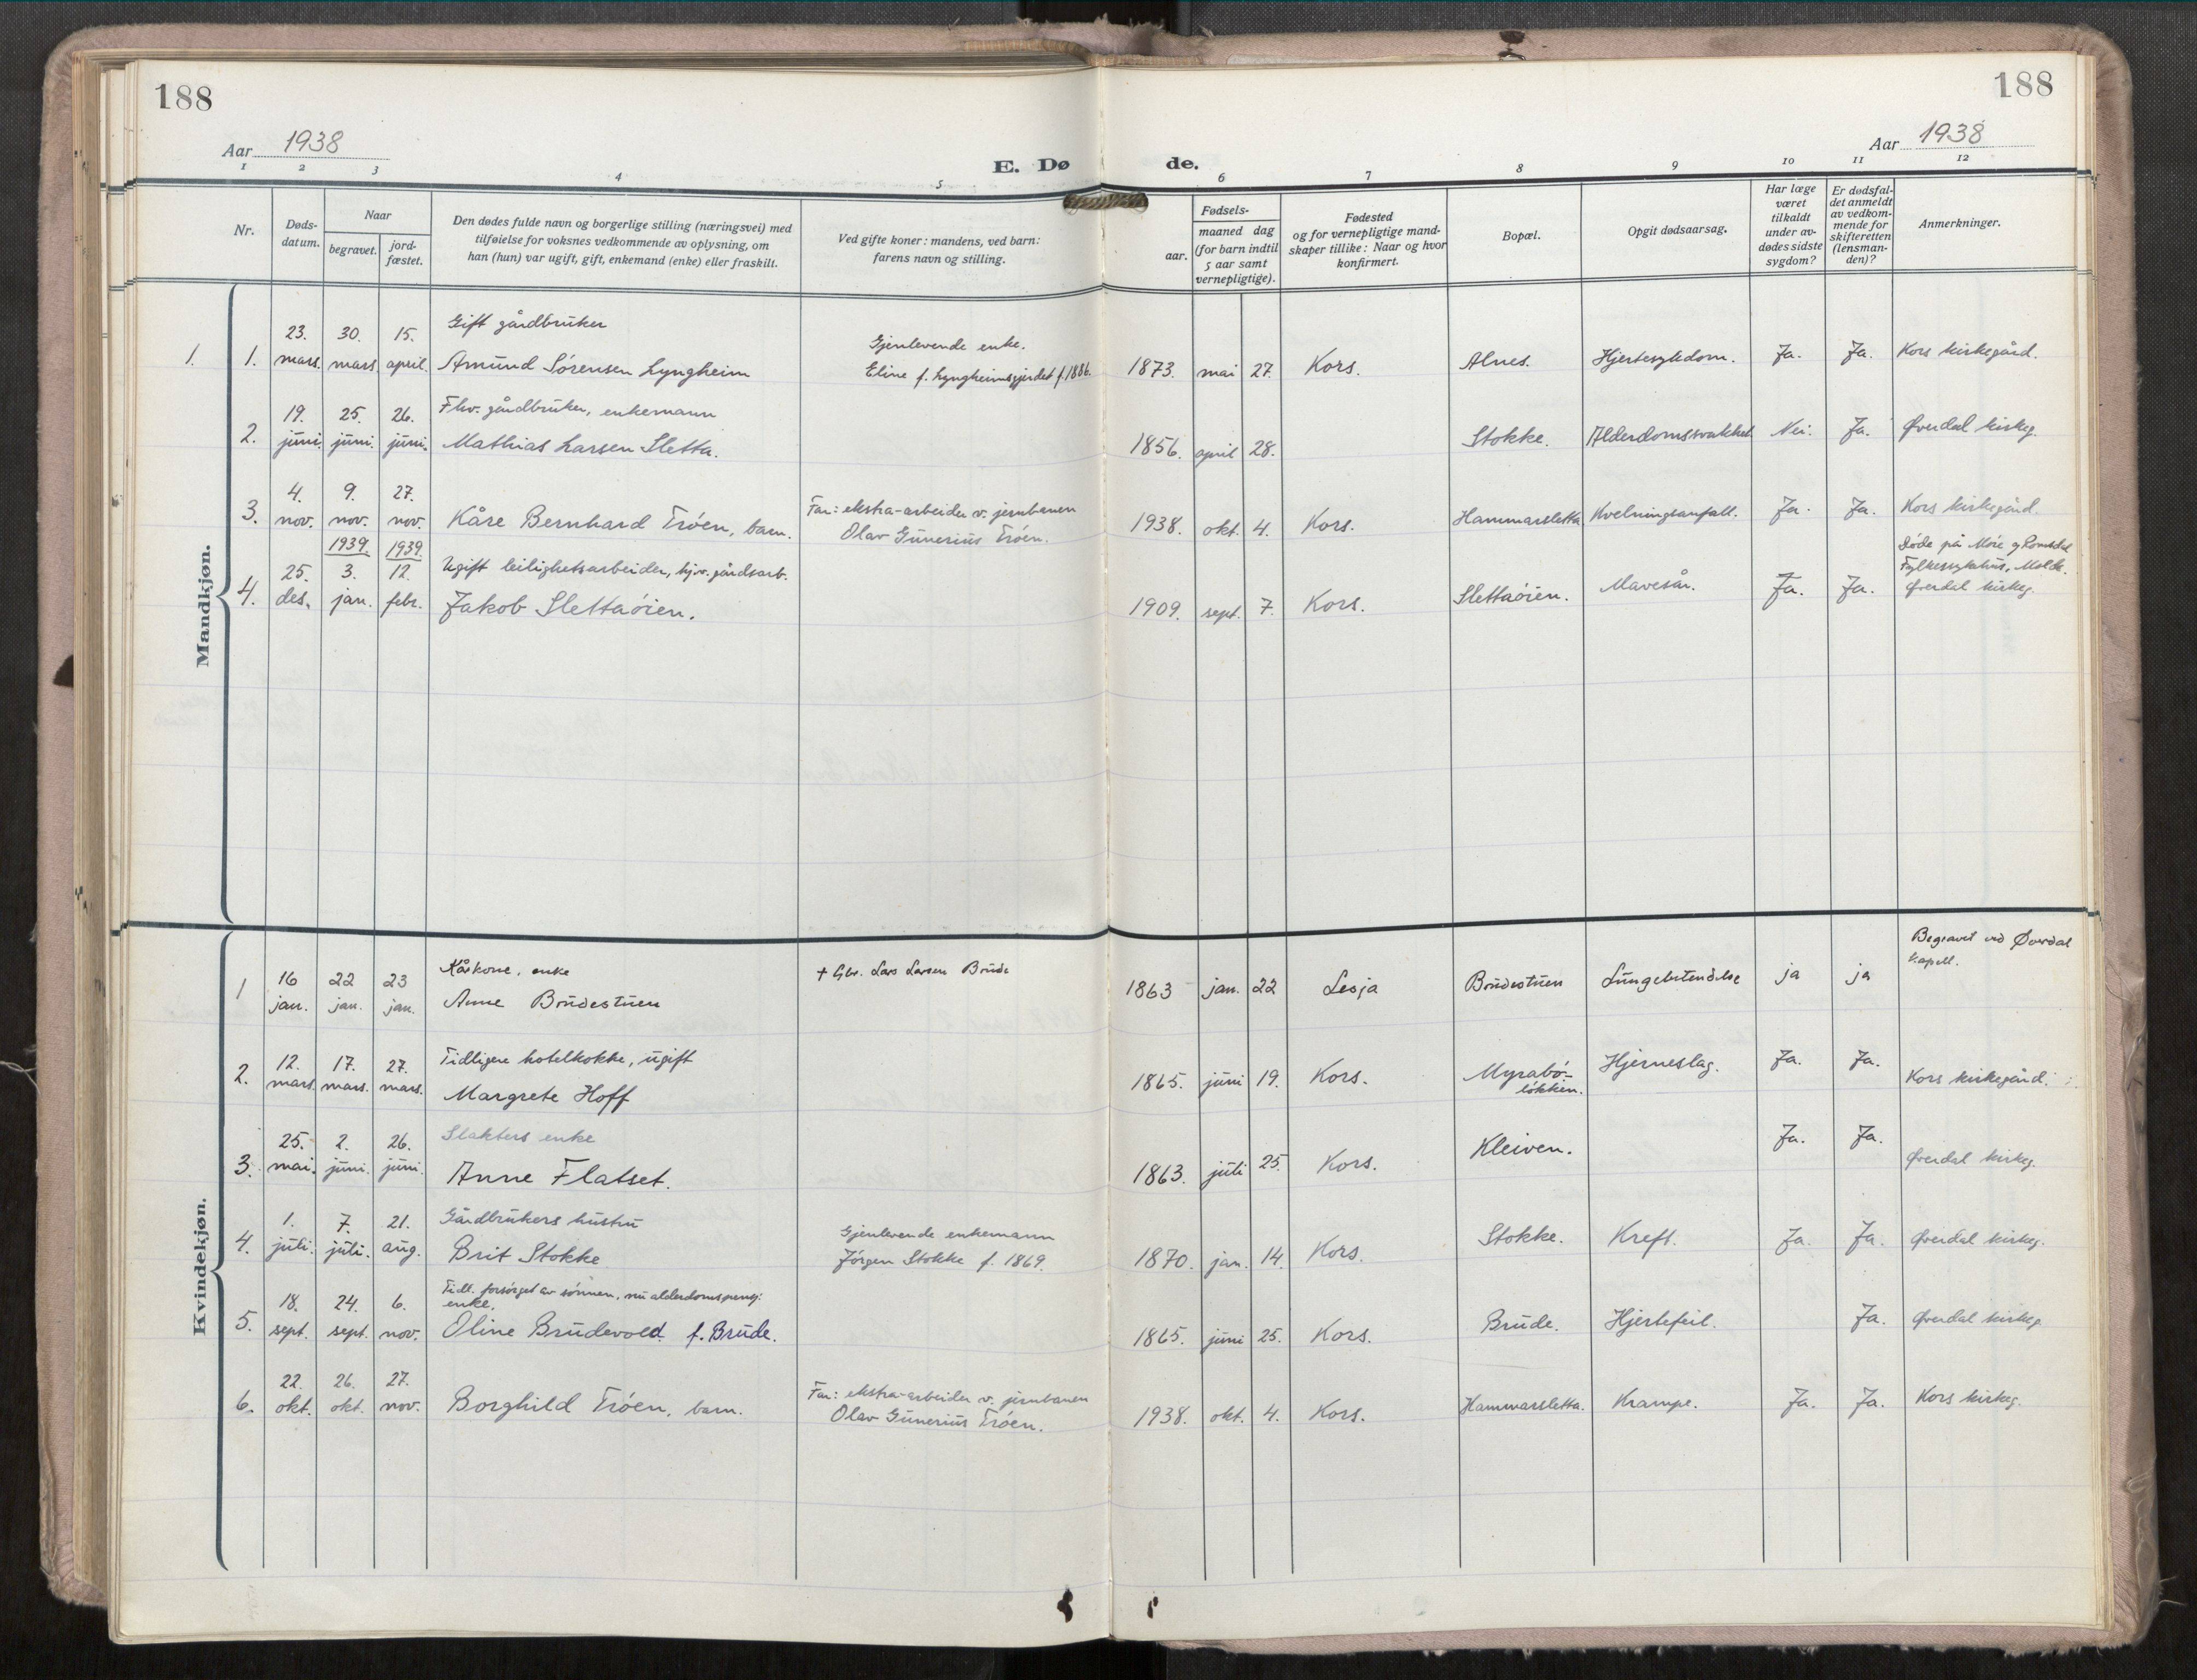 188
188
Aar 1938
Aar 1938
E. Dø
de.
1 2 3 4 5 6 7 8 9 10 11 12
Nr.
Døds-
datum.
Naar
begravet.
jord-
fæstet.
Den dødes fulde navn og borgerlige stilling (næringsvei) med
tilføielse for voksnes vedkommende av oplysning, om
han (hun) var ugift, gift, enkemand (enke) eller fraskilt.
Ved gifte koner: mandens, ved barn:
farens navn og stilling.
Fødsels-
aar.
maaned dag
(for barn indtil
5 aar samt
vernepligtige).
Fødested
og for vernepligtige mand-
skaper tillike: Naar og hvor
konfirmert.
Bopæl.
Opgit dødsaarsag.
Har læge
været
tilkaldt
under av-
dødes sidste
sygdom?
Er dødsfal-
det anmeldt
av vedkom-
mende for
skifteretten
(lensman-
den)?
Anmerkninger.
Mandkjøn.
23. 30. 15. Gift gårdbruker
Gjenlevende enke.
1. 1. mars. mars. april. Amund Sørensen Lyngheim Eline f. Lyngheimsgjerdet f. 1886. 1873. mai 27. Kors. Alnes. Hjertesykdom. Ja. Ja. Kors kirkegård.
19. 25. 26. Fhv. gårdbruker, enkemann
2. juni. juni. juni. Mathias Larsen Sletta. 1856. april 28. Stokke. Alderdomssvakhet. Nei. Ja. Øverdal kirkeg.
4. 9. 27. Far: ekstra-arbeider v. jernbanen
3. nov. nov. nov. Kåre Bernhard Trøen, barn. Olav Gunerius Trøen. 1938. okt. 4. Kors. Hammarsletta Kvelningsanfall. Ja. Ja. Kors kirkegård.
1939. 1939.
Døde på Møre og Romsdal
25. 3. 12. Ugift leilighetsarbeider, hj.v. gårdsarb. Fylkessykehus, Molde.
4. des. jan. febr. Jakob Slettaøien. 1909. sept. 7. Kors. Slettaøien. Mavesår. Ja. Ja. Øverdal kirkeg.
Kvindekjøn.
Begravet ved Øverdal
kapell.
16 22 23 Kårkone, enke
1 jan. jan. jan. Anne Brudestuen + Gbr. Lars Larsen Brude 1863 jan. 22 Lesja Brudestuen Lungebetendelse ja ja
12. 17. 27. Tidligere hotelkokke, ugift
2. mars. mars. mars. Margrete Hoff 1865. juni 19. Kors. Myrabø-
løkken. Hjerneslag. Ja. Ja. Kors kirkegård.
25. 2. 26. Slakters enke
3. mai. juni. juni. Anne Flatset. 1863. juli 25. Kors. Kleiven. Ja. Ja. Øverdal kirkeg.
1. 7. 21. Gårdbrukers hustru
Gjenlevende enkemann
4. juli. juli. aug. Brit Stokke Jørgen Stokke f. 1869. 1870. jan. 14. Kors. Stokke. Kreft. Ja. Ja. Øverdal kirkeg.
Tidl. forsørget av sønnen, nu alderdomspeng.
18. 24. 6. enke.
5. sept. sept. nov. Oline Brudevold f. Brude. 1865. juni 25. Kors. Brude. Hjertefeil. Ja. Øverdal kirkeg.
22. 26. 27. Far: ekstra-arbeider v. jernbanen
6. okt. okt. nov. Borghild Trøen, barn. Olav Gunerius Trøen. 1938. okt. 4. Kors. Hammarsletta. Krampe. Ja. Ja. Kors kirkeg.